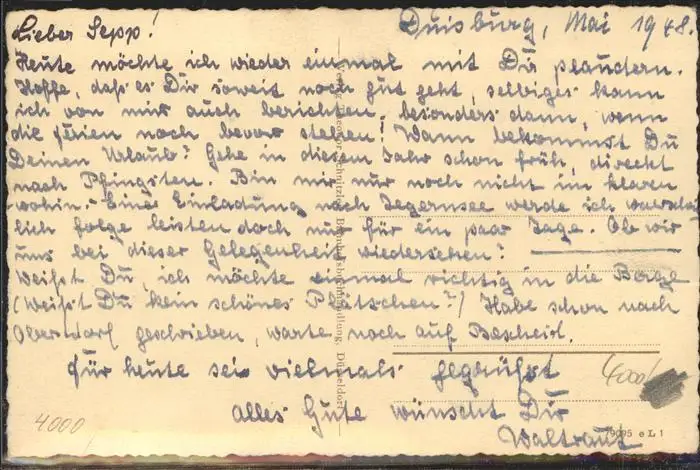 Duisburg, Mai 1948.
Lieber Sepp!
Heute möchte ich wieder einmal mit Dir plaudern.
Hoffe, daß es Dir soweit noch gut geht, selbiges kann
ich von mir auch berichten, besonders dann, wenn
die Ferien noch bevor stehen! Wann bekommst Du
Deinen Urlaub? Gehe in diesem Jahr schon früh, direckt
nach Pfingsten. Bin mir nur noch nicht im klaren
wohin. Einer Einladung nach Tegernsee werde ich wahrschein
lich folge leisten doch nur für ein paar Tage. Ob wir
uns bei dieser Gelegenheit wiedersehen?
Weißt Du, ich möchte einmal richtig in die Berge
(Weißt Du kein schönes Plätschen?) Habe schon nach
Oberndorf geschrieben, warte noch auf Bescheid.
Für heute sei vielmals gegrüßt
Alles Gute wünscht Dir
Waltraut
4000
4000/
79095 e L 1